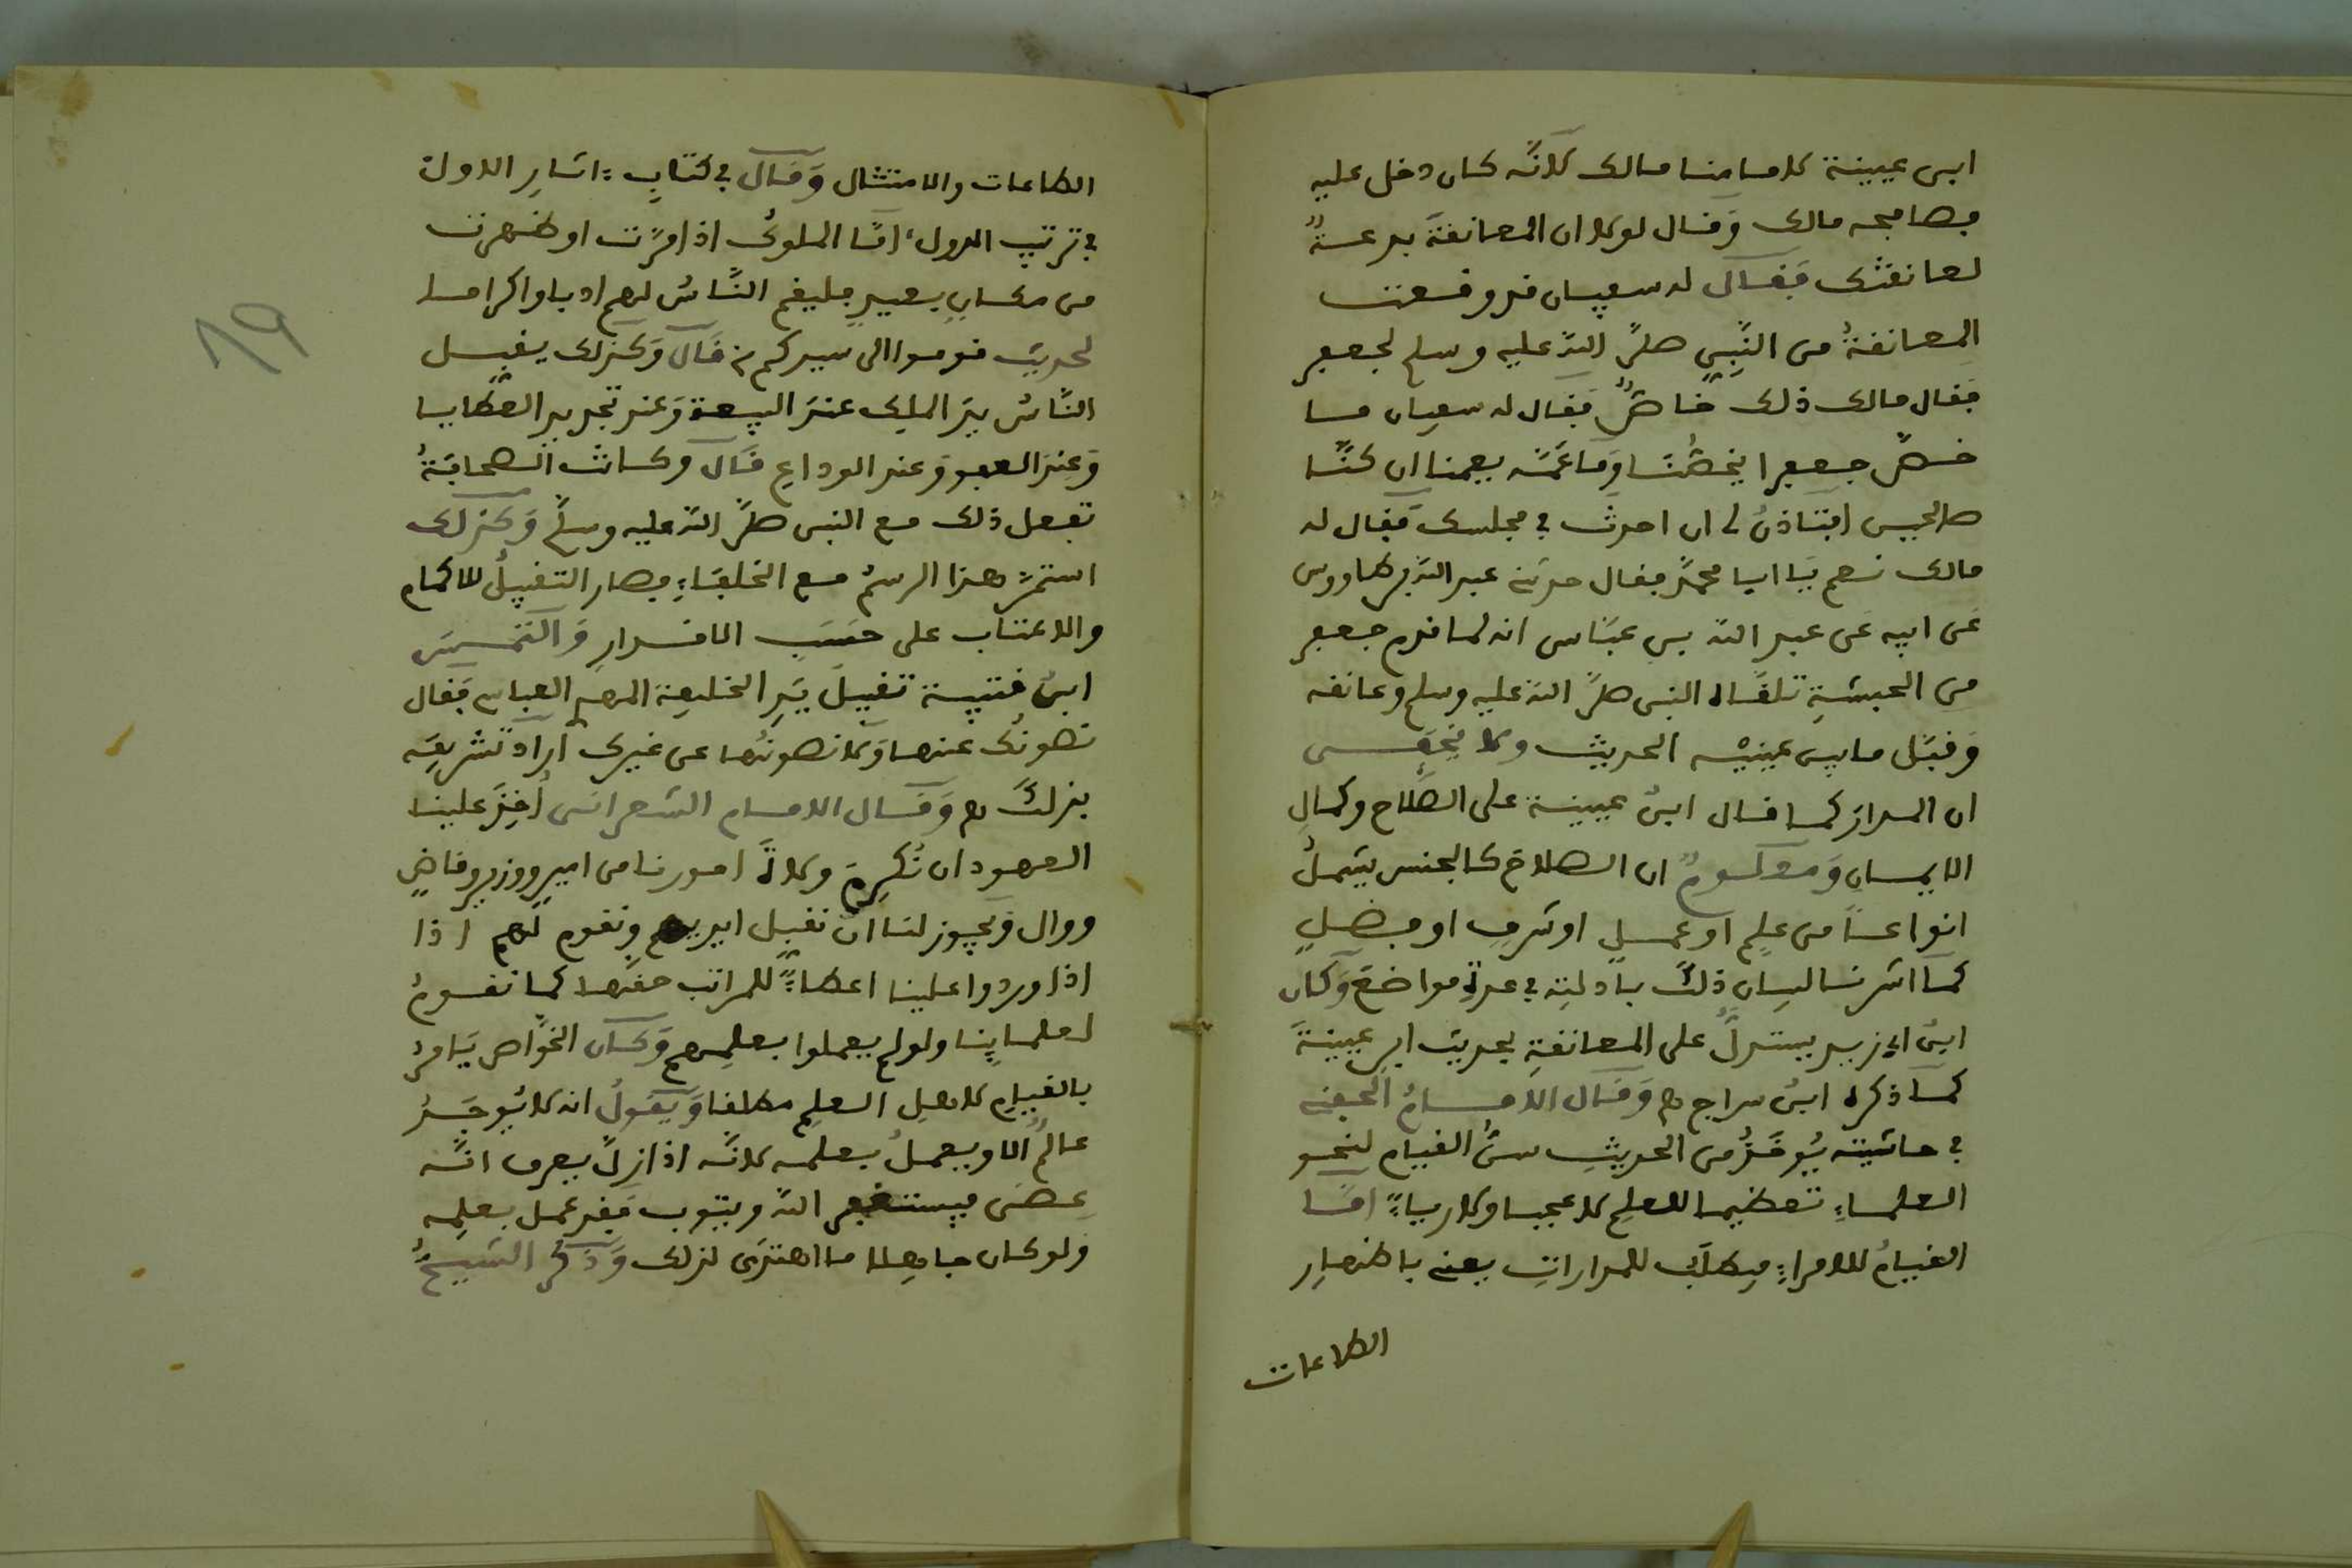 ابن عيينة لامامنا مالك لانّه كان دخل عليه
فصافحه مالك وقال لولا ان المعانقة بدعة
لعانقتك فقال له سفيان قد وقعت
المعانقةُ من النّبي صلّى الله عليه وسلم لجعفر
فقال مالك ذلك خاصٌّ فقال له سفيان ما
خصّ جعفرا يخصّنا وما عمّه يعمنا ان كنّا
صالحين افتاذنُ لى ان احدث في مجلسك فقال له
مالك نعم يا ابا محمّد فقال حدثنى عبد الله بن طاووس
عن ابيه عن عبد الله بن عبّاس انه لما قدم جعفر
من الحبشةِ تلقّاه النبى صلّى الله عليه وسلم وعانقه
وقبّل ما بين عينيْه الحديث ولا يخفى
ان المدار كما قال ابن عيينة على الصّلاح وكمالِ
الايمان ومعلومٌ ان الصلاح كالجنس يشملُ
انواعاً من علمٍ او عملٍ او شرفٍ او فضلٍ
كما اشرنا لبيان ذلك بادلتِه في عدةِ مواضعَ وكان
ابنُ ابى زيد يستدلّ على المعانقةِ بحديث ابن عيينةَ
كما ذكره ابنُ سراج ه وقال الامامُ الحفنى
في حاشيته يُوخَذُ من الحديثِ سنُّ القيام لنحو
العلماءِ تعظيما للعلم لا عجبا ولا رياءً امّا
القيامُ للامراءِ فيطلبُ للمداراتِ يعنى باظهارِ
الطاعات
الطاعات والامتثال وقال في كتابِ اثارِ الاول
في ترتيب الدول امّا الملوكُ اذا مرّت او ظهرت
من مكانٍ بعيدٍ فليقم النّاسُ لهم ادبا واكراما
لحديث قوموا الى سيدكم قال وكذلك يقبل
النّاسُ يدَ الملِك عندَ البيعة وعند تجديد العطايا
وعندَ العفو وعند الوداعِ قال وكانت الصحابةُ
تفعل ذلك مع النبى صلّى الله عليه وسلّم وكذلك
استمرّ هذا الرسمُ مع الخلفاءِ فصار التقبيلُ للاكمام
والاعتاب على حسَبِ الاقدارِ والتمس
ابن قتيبة تقبيلَ يدِ الخليفة المهدى العباسى فقال
نصونُك عنها ولا نصونُها عن غيرك اراد تشريفَه
بذلك ه وقال الامام الشعرانى أُخِذَ علينا
العهود ان نُكرِمَ ولاةَ امورنا من امير ووزير وقاضٍ
ووال ويجوز لنا ان نقبل ايديهم ونقوم لهم اذا
اذا وردوا علينا اعطاءً للمراتب حقّها كما نقومُ
لعلماينا ولو لم يعملوا بعلمهم وكان الخوّاص يَامرُ
بالقيام لاهل العلم مطلقا ويقولُ انه لا يُوجَدُ
عالمٌ الا ويعملُ بعلمه لانّه اذا زلّ يعرف انّه
عصى فيستغفر الله ويتوب فقد عمل بعلمِه
ولو كان جاهلا ما اهتدى لذلك وذكر الشيخُ
19